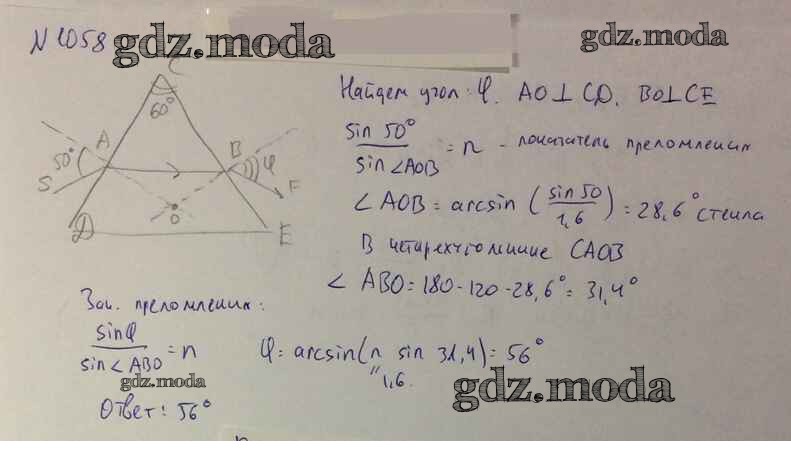 N 1058 gdz.moda gdz.moda
Найдем угол: φ. AO⊥CD, BO⊥CE
C
60°
A
B
50°
φ
S
F
O
D
E
sin 50° / sin∠AOB = n - показатель преломления
∠AOB = arcsin (sin 50 / 1,6) = 28,6° стекла
В четырехугольнике CAOB
∠ ABO = 180 - 120 - 28,6° = 31,4°
Зак. преломления:
sinφ / sin∠ABO = n
φ = arcsin(n sin 31,4) = 56°
"
1,6.
gdz.moda
gdz.moda
Ответ: 56°